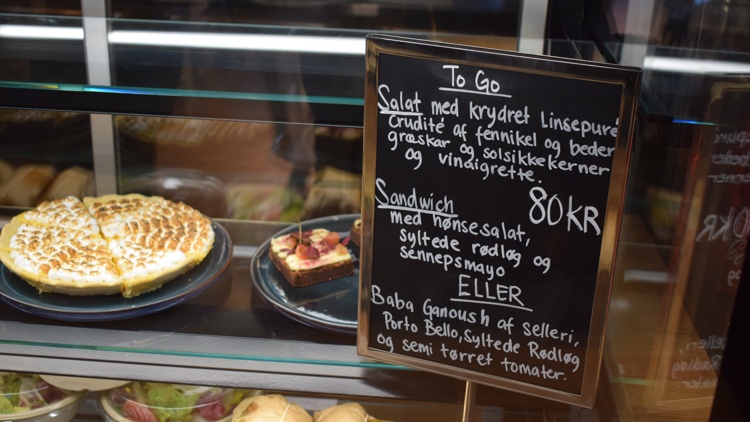 To Go
Salat med krydret Linsepuré
crudité af fennikel og beder
græskar og solsikkekerner
og vinaigrette.
80 KR
Sandwich
med hønsesalat,
syltede rødløg og
sennepsmayo
ELLER
Baba Ganoush af selleri,
Porto Bello, Syltede Rødløg
og semi tørret tomater.